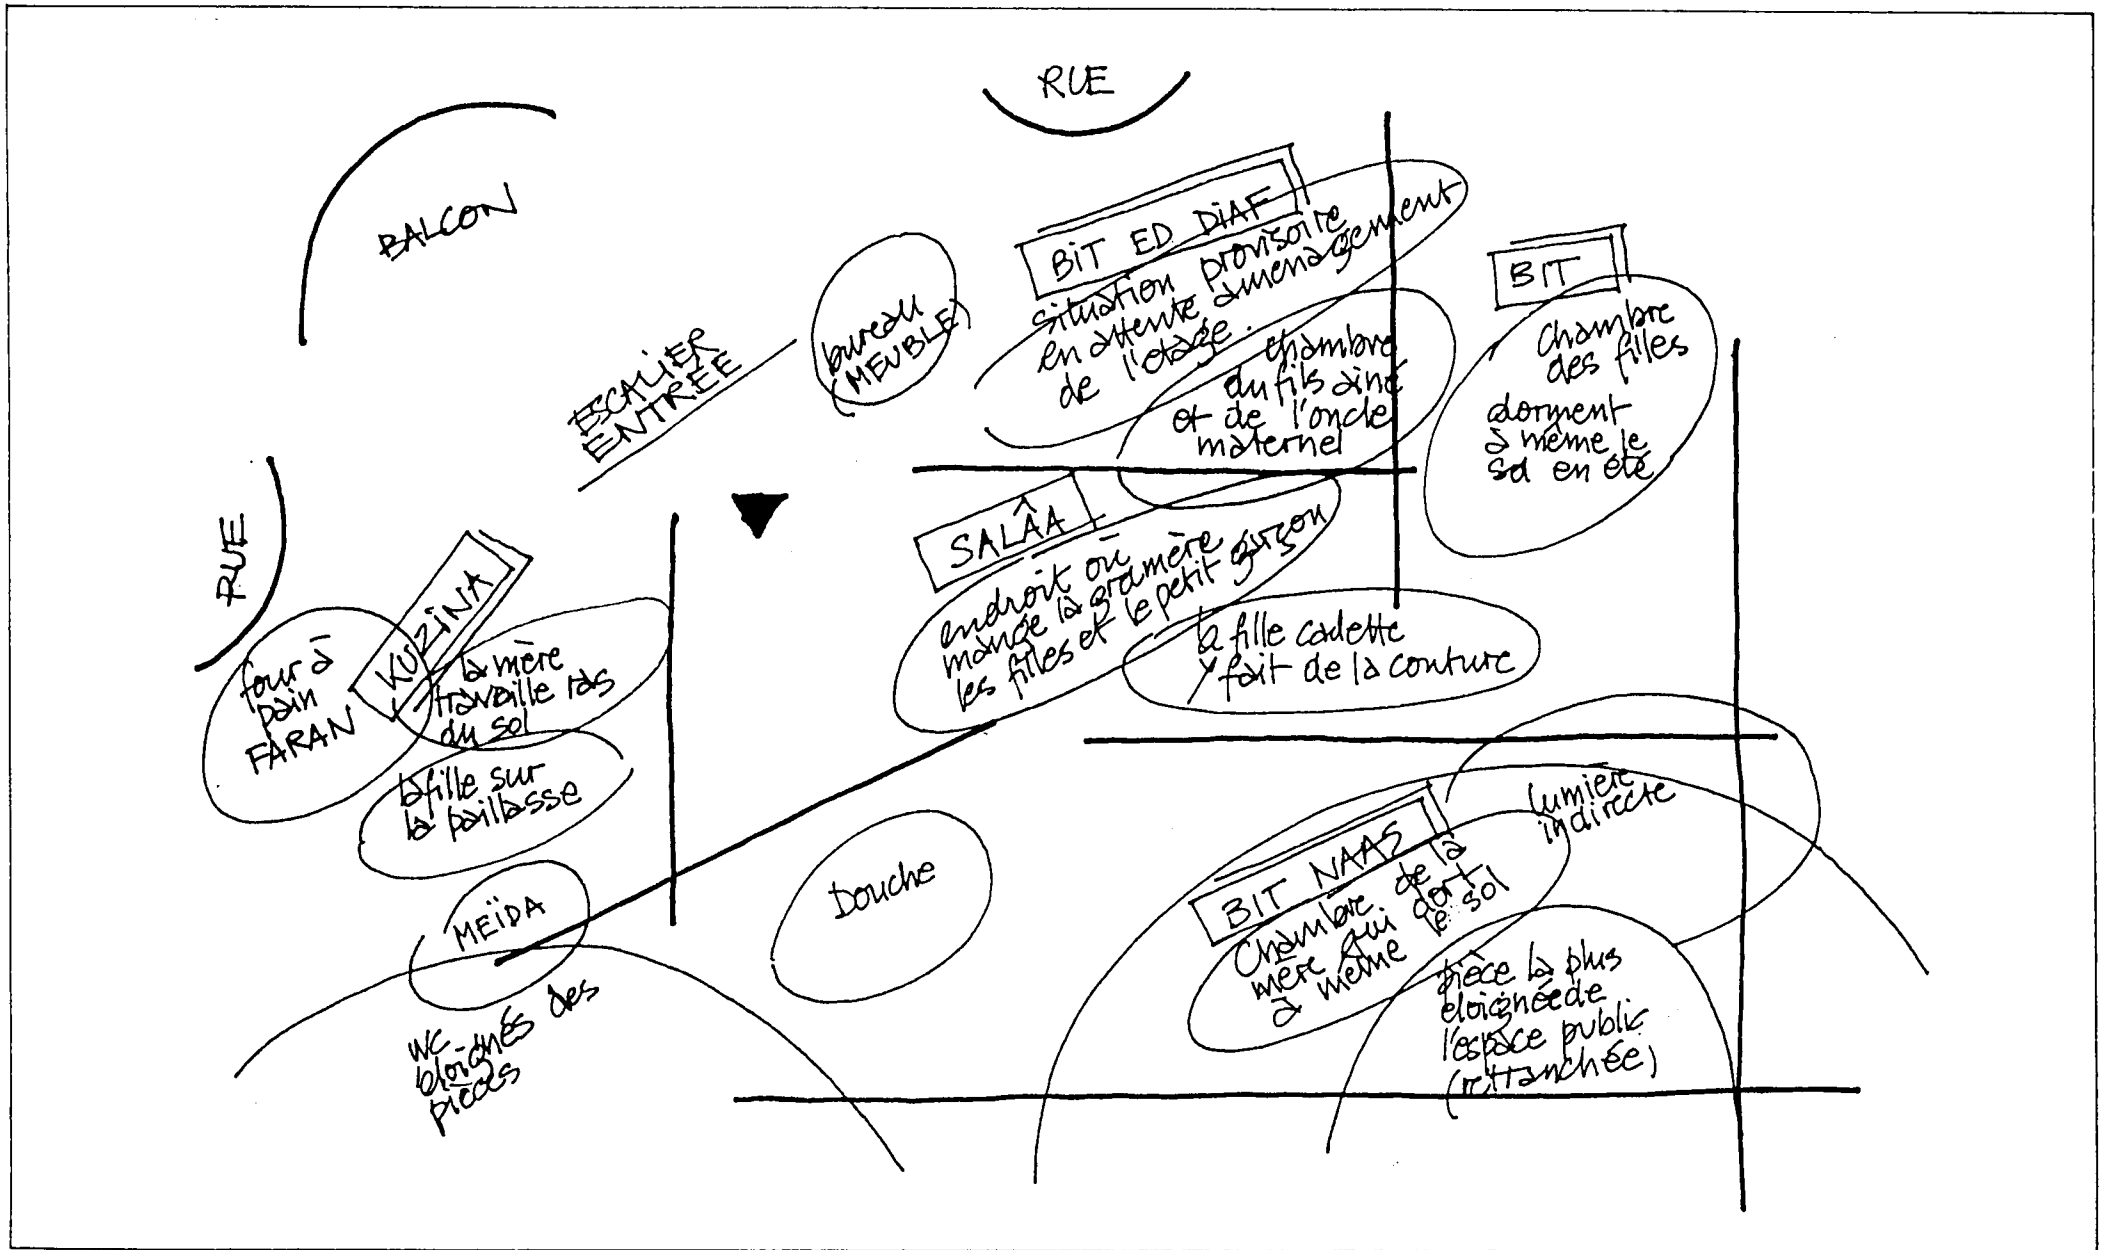 RUE
BALCON
ESCALIER
ENTRÉE
bureau
(MEUBLE)
BIT ED DIAF
situation provisoire
en attente amenagement
de l'etage.
chambre
du fils ainé
et de l'oncle
maternel
BIT
chambre
des filles
dorment
à même le
sol en été
RUE
KUZINA
four à
pain
FARAN
la mère
travaille ras
du sol
la fille sur
la paillasse
MEÏDA
wc
éloignés des
pièces
SALÂA
endroit où
mange la gramère
les filles et le petit garçon
la fille cadette
y fait de la couture
Douche
BIT NAAS
Chambre de la
mère qui dort
à même le sol
lumière
indirecte
pièce la plus
éloignée de
l'espace public
(retranchée)